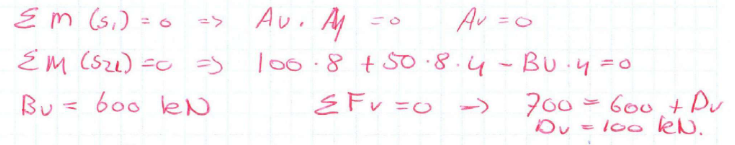 Σ M (S₁) = 0 => Av . 4 = 0 Av = 0
Σ M (S2L) = 0 => 100 · 8 + 50 · 8 · 4 - Bv · 4 = 0
Bv = 600 kN Σ Fv = 0 => 700 = 600 + Dv
Dv = 100 kN.